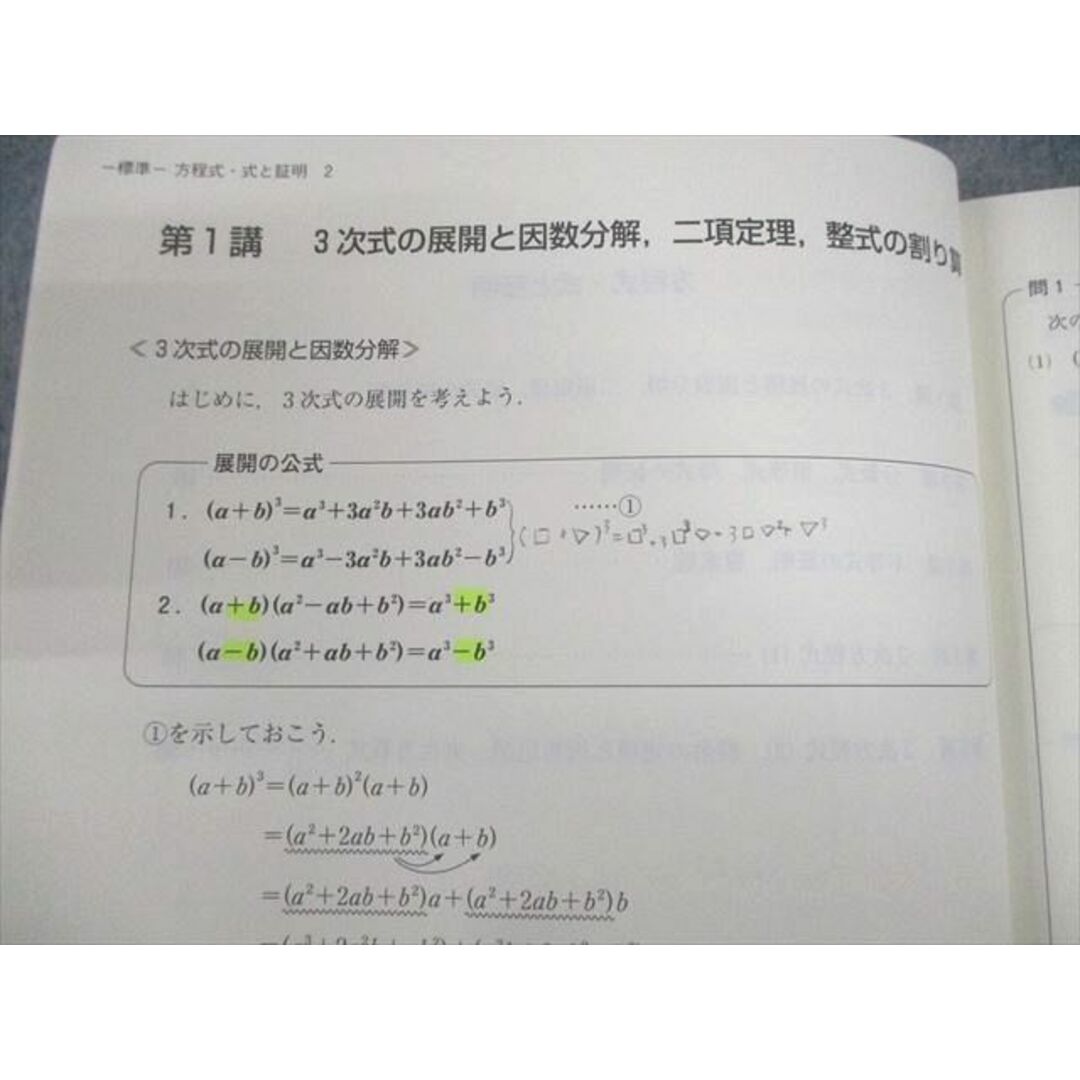 －標準－ 方程式・式と証明 2
第1講 3次式の展開と因数分解，二項定理，整式の割り算
＜3次式の展開と因数分解＞
はじめに，3次式の展開を考えよう．
展開の公式
1． (a＋b)³＝a³＋3a²b＋3ab²＋b³ ……①
(a－b)³＝a³－3a²b＋3ab²－b³
2． (a＋b)(a²－ab＋b²)＝a³＋b³
(a－b)(a²＋ab＋b²)＝a³－b³
①を示しておこう．
(a＋b)³＝(a＋b)²(a＋b)
＝(a²＋2ab＋b²)(a＋b)
＝(a²＋2ab＋b²)a＋(a²＋2ab＋b²)b
問1
次の
(1) (